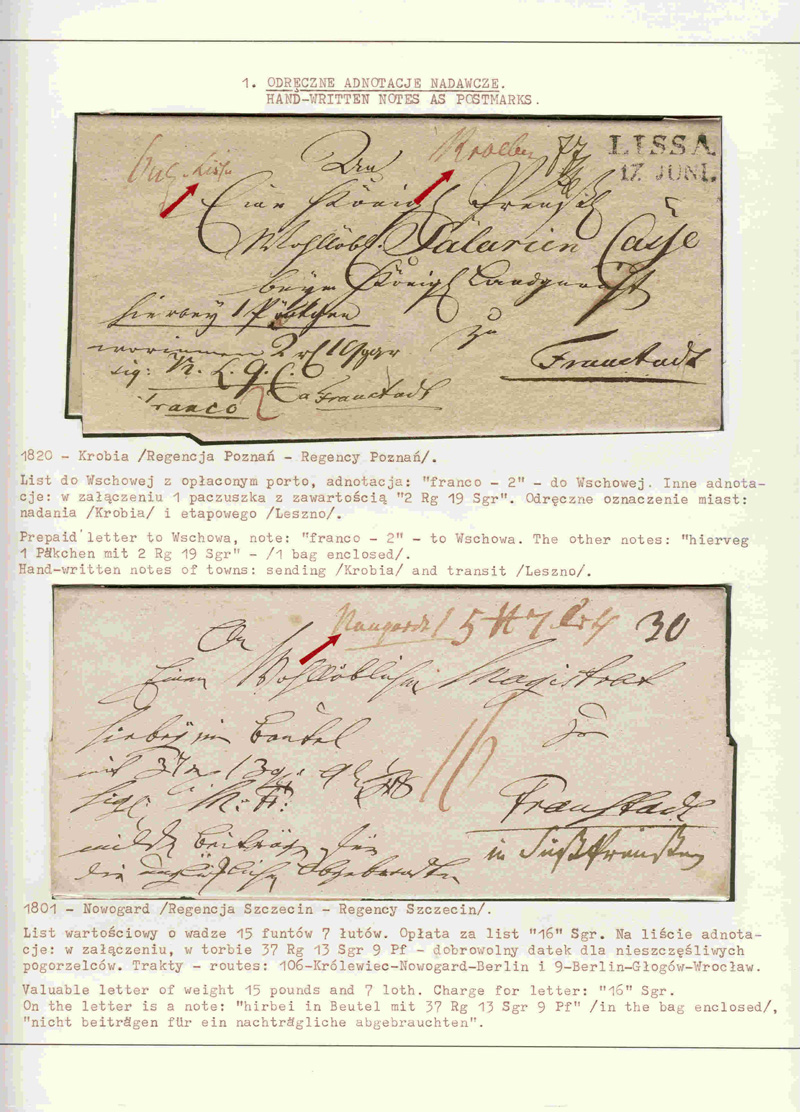 1. ODRĘCZNE ADNOTACJE NADAWCZE.
HAND-WRITTEN NOTES AS POSTMARKS.
Kroeben
LISSA
17. JUNI.
An
Eine Königl Preuß
Wohllöbl. Salarien Casse
beym Königl Landgericht
hierbey 1 Päckgen
zu
Fraustadt
sig: K. L. G. C.
franco 2 a Fraustadt
1820 - Krobia /Regencja Poznań - Regency Poznań/.
List do Wschowej z opłaconym porto, adnotacja: "franco - 2" - do Wschowej. Inne adnota-
cje: w załączeniu 1 paczuszka z zawartością "2 Rg 19 Sgr". Odręczne oznaczenie miast:
nadania /Krobia/ i etapowego /Leszno/.
Prepaid letter to Wschowa, note: "franco - 2" - to Wschowa. The other notes: "hierveg
1 Päkchen mit 2 Rg 19 Sgr" - /1 bag enclosed/.
Hand-written notes of towns: sending /Krobia/ and transit /Leszno/.
Naugardt 30
An
Einen Wohllöblichen Magistrat
hiebey im Beutel
zu
mit 37
16
Fraustadt
milde Beiträge für
in Südpreußen
die
1801 - Nowogard /Regencja Szczecin - Regency Szczecin/.
List wartościowy o wadze 15 funtów 7 łutów. Opłata za list "16" Sgr. Na liście adnota-
cje: w załączeniu, w torbie 37 Rg 13 Sgr 9 Pf - dobrowolny datek dla nieszczęśliwych
pogorzelców. Trakty - routes: 106-Królewiec-Nowogard-Berlin i 9-Berlin-Głogów-Wrocław.
Valuable letter of weight 15 pounds and 7 loth. Charge for letter: "16" Sgr.
On the letter is a note: "hirbei in Beutel mit 37 Rg 13 Sgr 9 Pf" /in the bag enclosed/,
"nicht beiträgen für ein nachträgliche abgebrauchten".